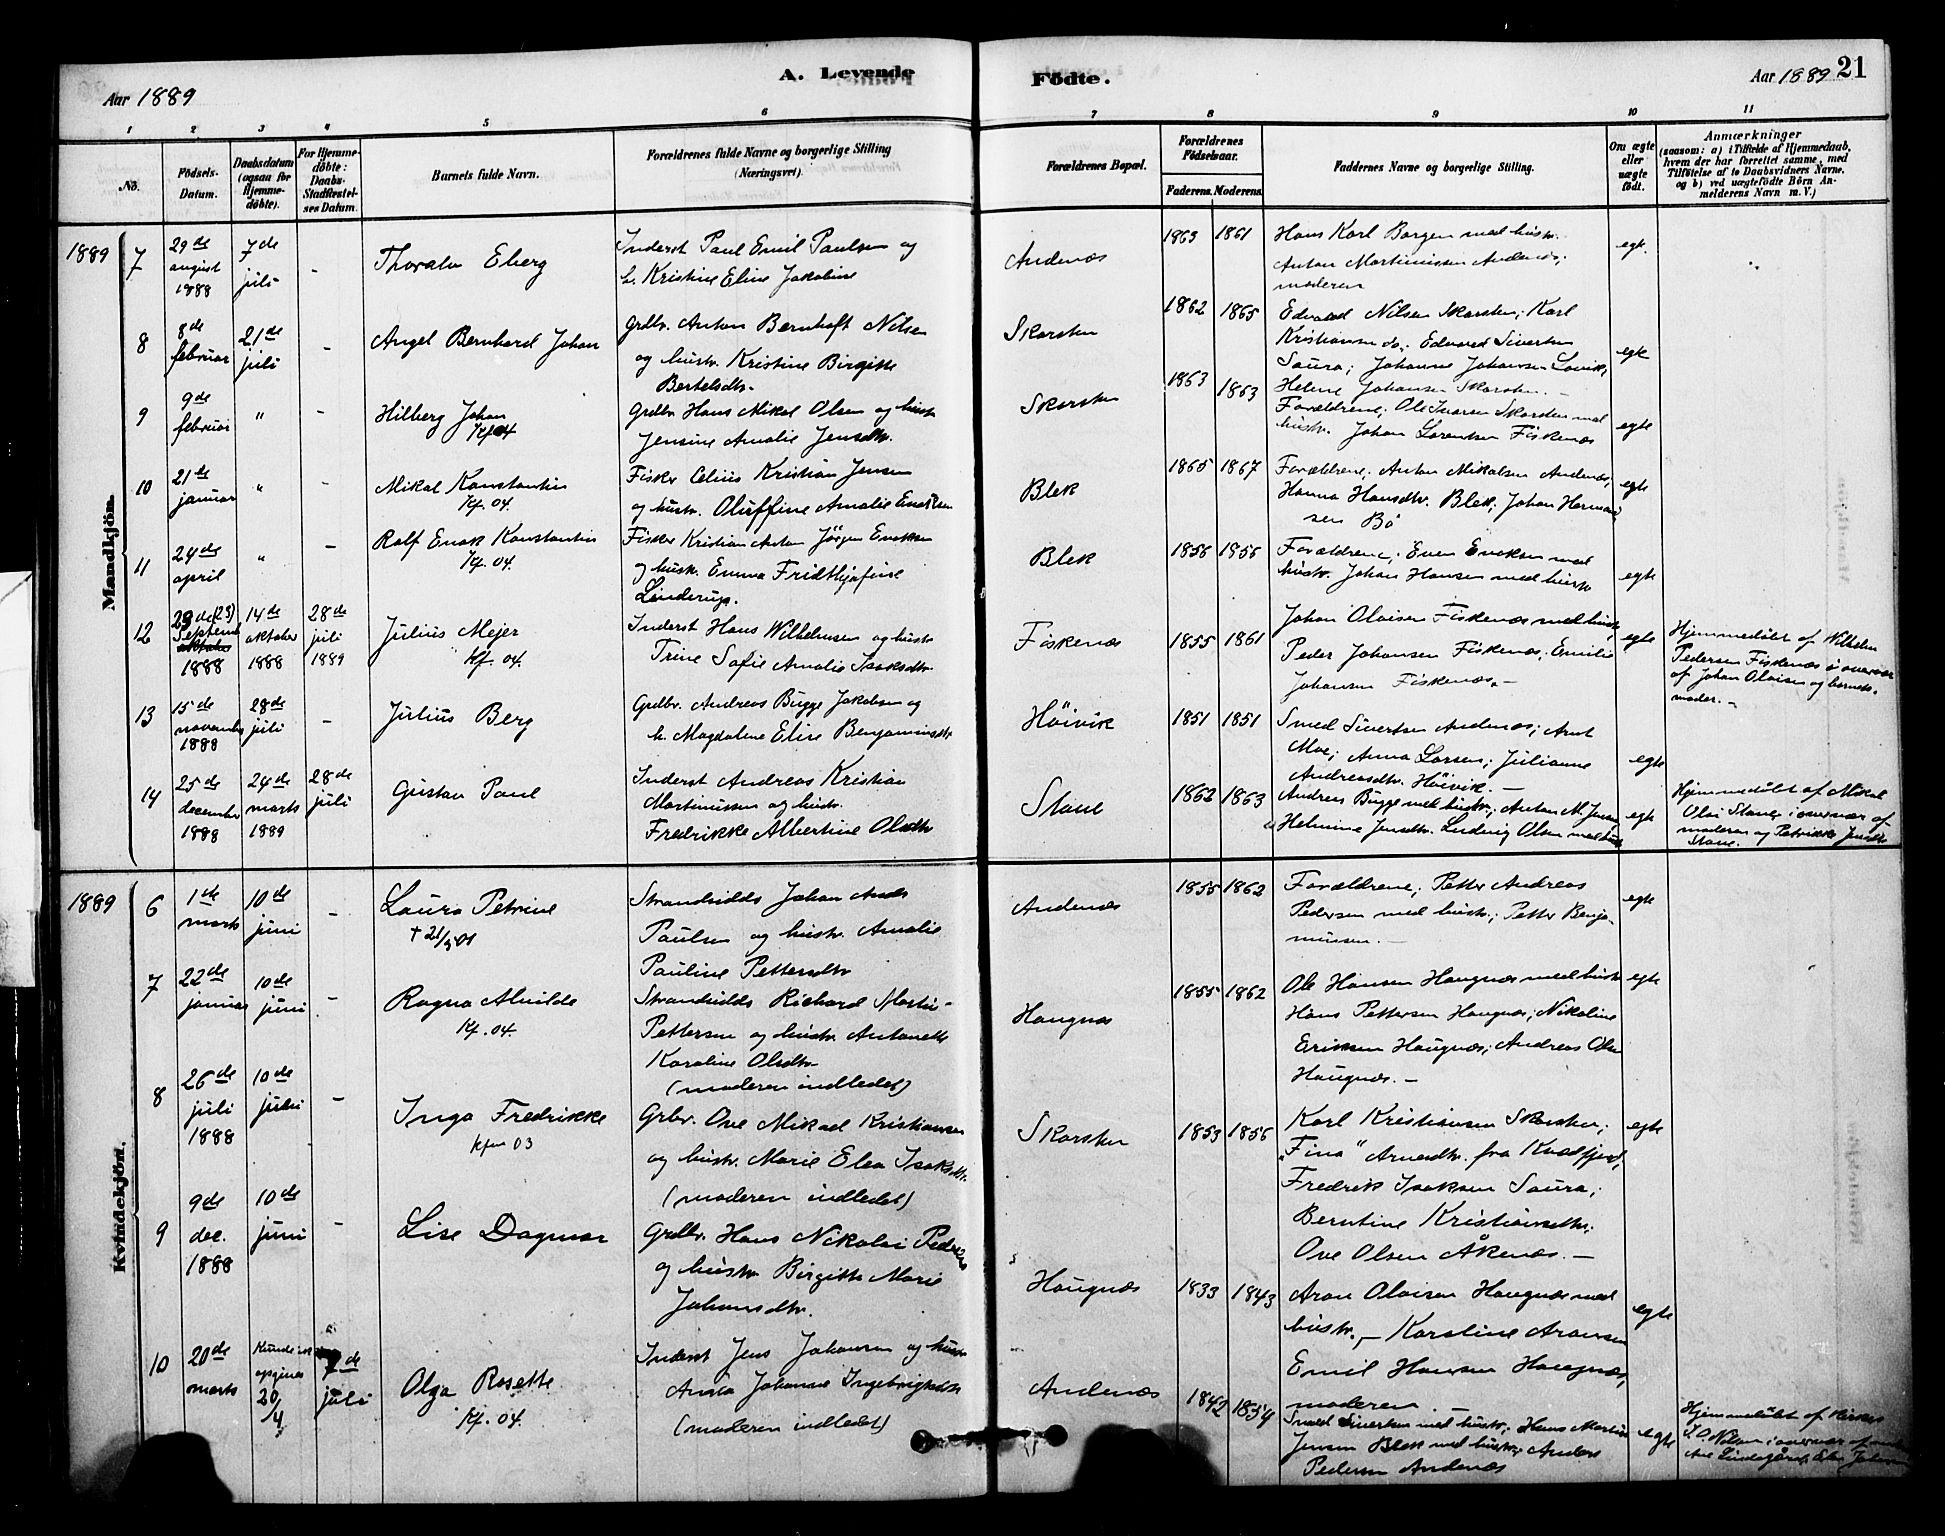 A. Levende
Födte.
Aar 1889
Aar 1889
21
1 2 3 4 5 6 7 8 9 10 11
No.
Födsels-
Datum.
Daabsdatum
(ogsaa for
Hjemme-
döbte).
For Hjemme-
döbte:
Daabs-
Stadfæstel-
ses Datum.
Barnets fulde Navn.
Forældrenes fulde Navne og borgerlige Stilling
(Næringsvei).
Forældrenes Bopæl.
Forældrenes
Födselsaar.
Faderens. Moderens.
Faddernes Navne og borgerlige Stilling.
Om ægte
eller
uægte
födt.
Anmærkninger
(saasom: a) i Tilfælde af Hjemmedaab,
hvem der har forrettet samme, med
Tilföielse af to Daabsvidners Navne.
og b) ved uægtefödte Börn An-
melderens Navn m. V.)
Mandkjön.
1889
7
29de
august
1888
7de
juli
-
Thoralv Eberg
Inderst Paul Emil Paulsen og
h. Kristine Eline Jakobine
Andenæs
1863 1861
Hans Karl Borgen med hustr.
Anton Martinussen Andenæs;
moderen
egt.
8
8de
februar
21de
juli
-
Angel Bernhard Johan
Grdbr. Anton Bernhoft Nilsen
og hustr. Kristine Birgitte
Bertelsdtr.
Skarsten
1862 1865
Edvard Nilsen Skarsten; Karl
Kristiansen do; Edvard Sivertsen
Saura; Johanne Johansen
Helene Johansen Skarsten. -
egte
9
9de
februar
"
-
Hilberg Johan
Kf 04
Grdbr Hans Mikal Olsen og hustr
Jensine Amalie Jensdtr.
Skarsten
1863 1863
Forældrene; Ole Ivarsen Skarsten med
hustr. Johan Lorentsen Fiskenæs
egte
10
21de
januar
"
-
Mikal Konstantin
Kf. 04
Fisker Kristian Jensen
og hustr. Oluffine Amalie
Blek
1865 1867
Forældrene; Anton Mikalsen Andenæs;
Hanna Hansdtr. Blek; Johan Herman-
sen Bö
egte
11
24de
april
"
-
Rolf Enok Konstantin
Kf. 04.
Fisker Kristian Anton Jörgen Enoksen
og hustr. Emma Fridthjofine
Linderup.
Blek
1856 1856
Forældrene; Even Enoksen med
hustr. Johan Hansen med hustr
egte
12
23de (23)
Septemb
oktober
1888
14de
oktober
1888
28de
juli
1889
Julius Mejer
Kf. 04.
Inderst Hans Wilhelmsen og hustr
Trine Sofie Amalie Isaksdtr.
Fiskenæs
1855 1861
Johan Olaisen Fiskenæs med hustr
Peder Johansen Fiskenæs; Emilie
Johansen Fiskenæs. -
egte
Hjemmedöbt af Vilhelm
Pedersen Fiskenæs i overvær
af Johan Olaisen og barnets
moder. -
13
15de
november
1888
28de
juli
-
Julius Berg
Grdbr. Andreas Bugge Jakobsen og
h. Magdalene Elise Benjaminsdtr
Höivik
1851 1851
Smed Sivertsen Andenæs; Arnt
Moe; Anna Larsen; Julianne
Andreasdtr. Höivik. -
egte
14
25de
december
1888
24de
marts
1889
28de
juli
Gustav Paul
Inderst Andreas Kristian
Martinussen og hustr.
Fredrikke Albertine Olsdtr
Stave
1862 1863
Andreas Bugge med hustr; Anton M. Jensen,
Helmine Jensdtr. Ludvig Olsen med hustr
egte
Hjemmedöbt af Mikal
Olai Stave i overvær af
moderen og Petrikke Jensdtr
Stave.
Kvindekjön.
1889
6
1de
marts
10de
juni
-
Laura Petrine
† 21/9 01
Strandsidds Johan Ands
Paulsen og hustr. Amalie
Pauline Pettersdtr
Andenæs
1855 1862
Forældrene; Petter Andreas
Pedersen med hustr.; Petter Benja-
minsen. -
egte
7
22de
januar
10de
juni
-
Ragna Alvilde
Kf. 04.
Strandsidds Richard Martin
Pettersen og hustr Antonette
Karoline Olsdtr
(moderen indledet)
Haugnæs
1855 1862
Ole Hansen Haugnæs med hustr
Hans Pettersen Haugnæs; Nikoline
Eriksen Haugnæs; Andreas Olsen
Haugnæs. -
egte
8
26de
juli
1888
10de
juli
-
Inga Fredrikke
Kfm 03
Grbr. Ove Mikael Kristiansen
og hustr. Marie Elea Isaksdtr.
(moderen indledet)
Skarsten
1853 1856
Karl Kristiansen Skarsten;
"Fina" Arnesdtr. fra Kvædfjord;
Fredrik Isaksen Saura;
Berntine Kristiansdtr.
Ove Olsen Åkenæs. -
egte
9
9de
dec.
1888
10de
juni
-
Lise Dagmar
Grdbr. Hans Nikolai Pedersen
og hustr Birgitte Marie
Johansdtr.
Haugnæs
1833 1843
Aron Olaisen Haugnæs med
hustr. - Karoline Aronsen
Emil Hansen Haugnæs,
moderen. -
egte
10
20de
marts
20/4
7de
juli
Olga Rosette
Kf. 04.
Inderst Jens Johansen og hustr
Anna Johanne Ingebrigtsdtr
(moderen indledet)
Andenæs
1842 1854
Smed Sivertsen med hustr; Hans Martin
Jensen Blek med hustr; Anders
Pedersen Andenæs
egte
Hjemmedöbt af
Nilsen i overvær af